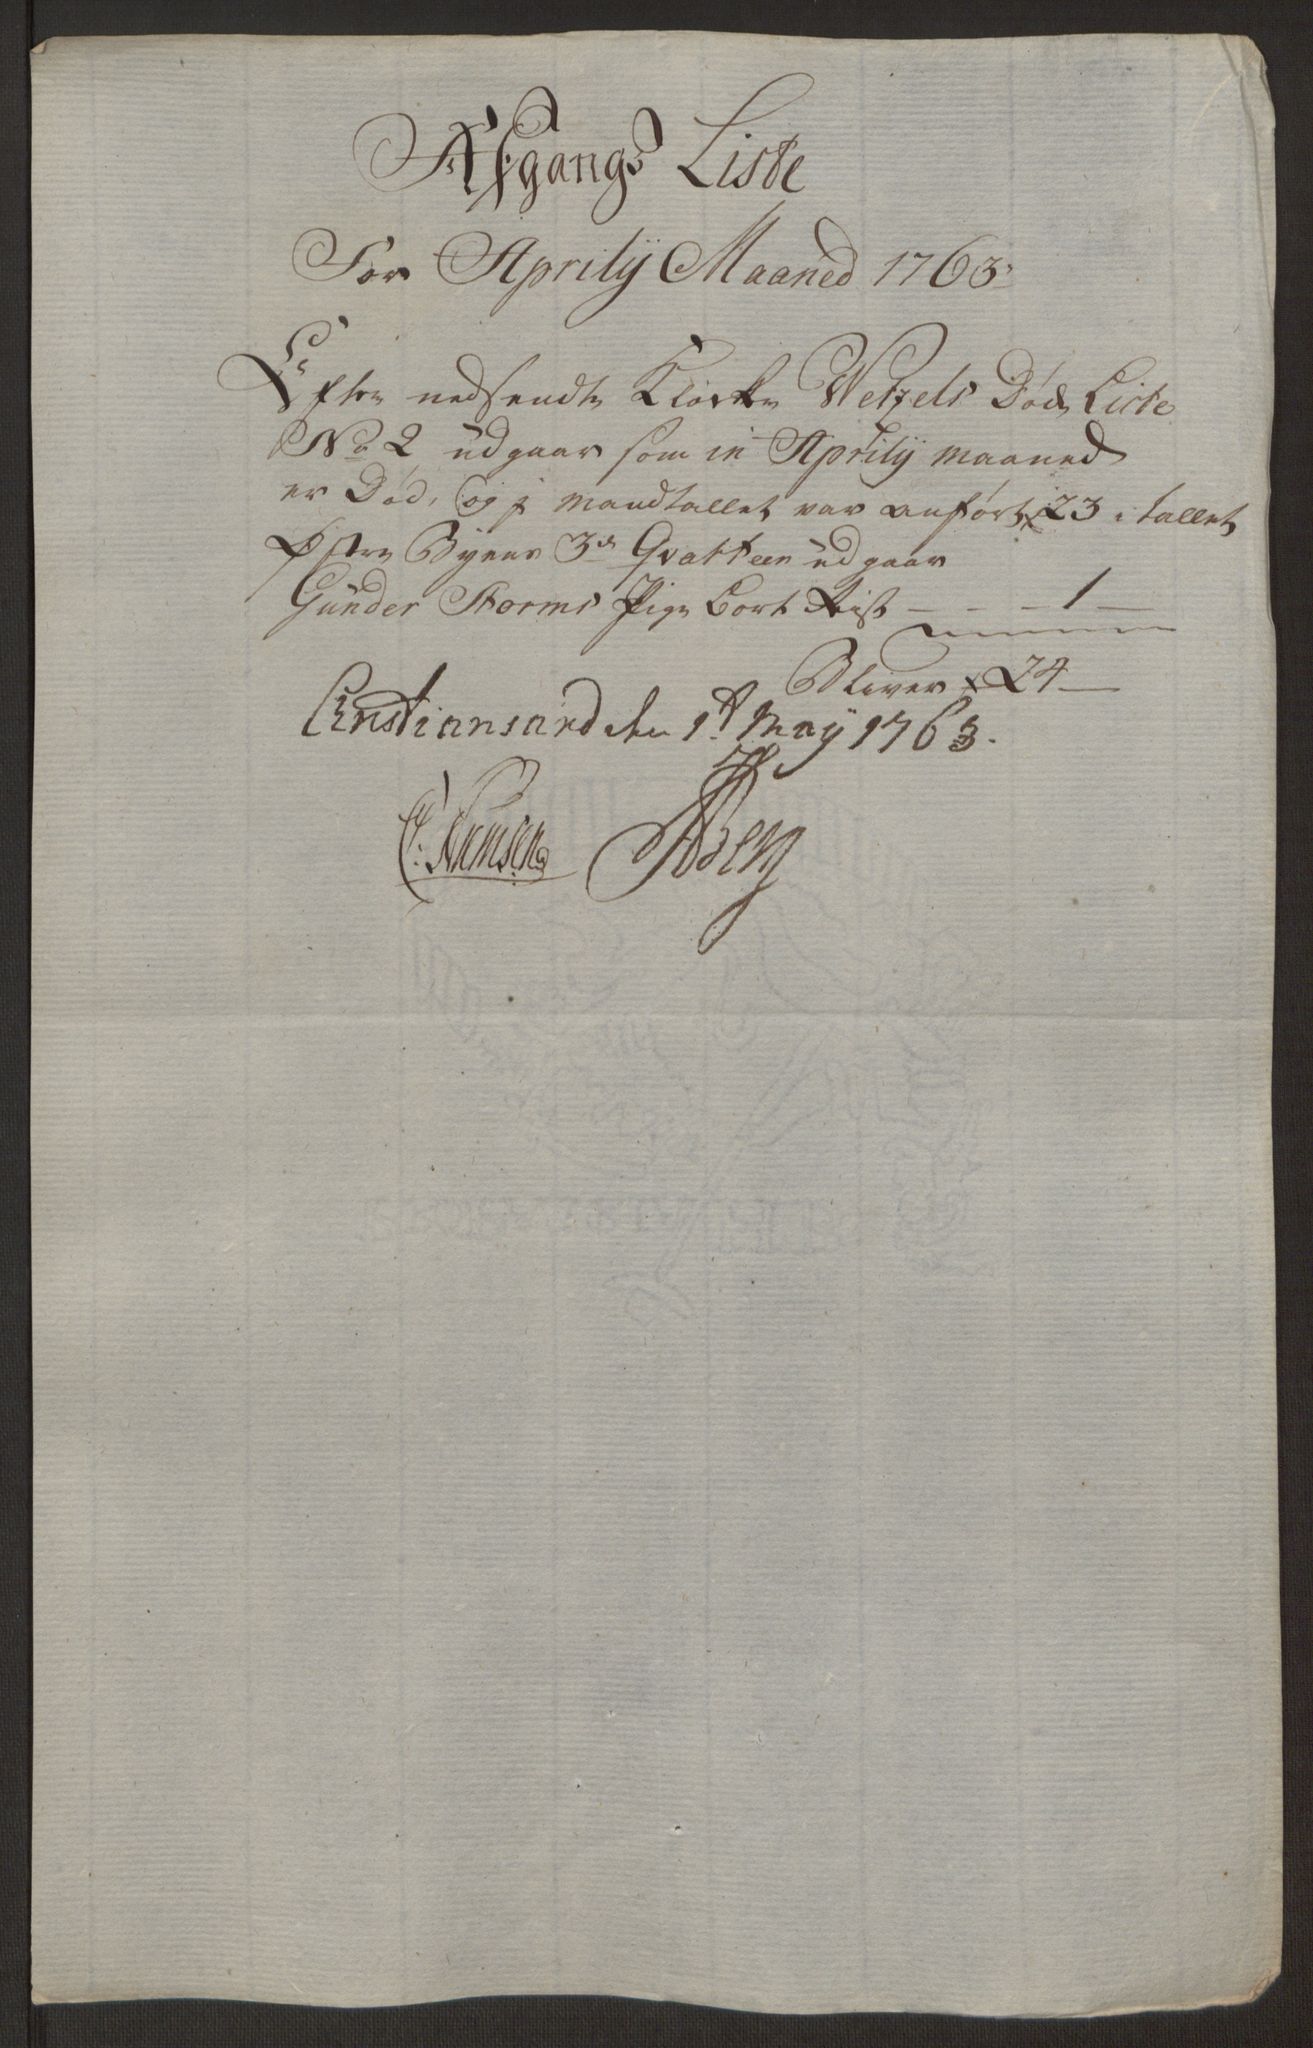 Afgangs Liste
For Aprilÿ Maaned 1763
Efter nedsendte Klocker Wetzels Døde Liste
No 2 udgaar som in Aprilÿ maaned
er Død, og i mandtallet var anført 23 i tallet
Østre Byens 3de Qvarteer udgaar
Gunder Storms Pige bort Reist - - - 1 -
Bliver 24 -
Christiansand den 1t. Maÿ 1763.
ABerg